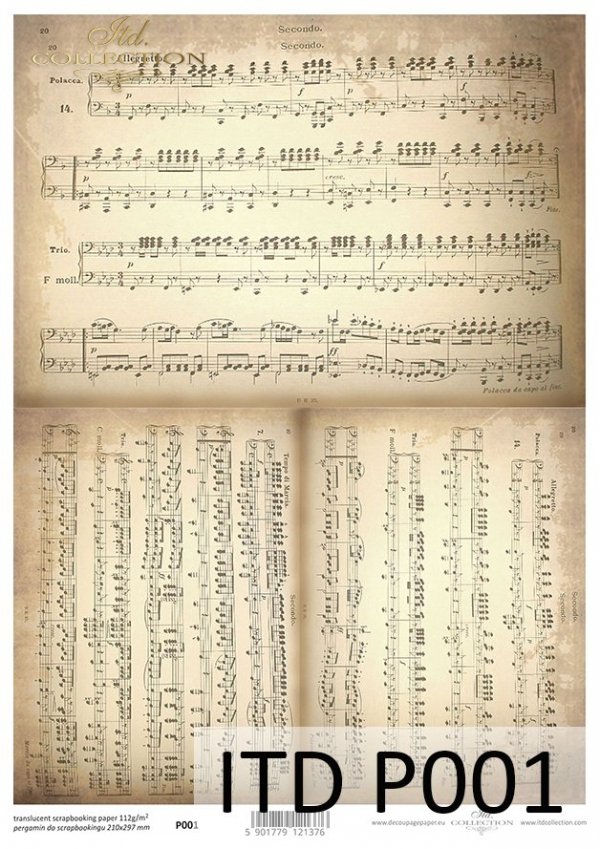 20
Secondo.
20
Secondo.
Itd.
COLLECTION
Allegretto.
Polacca.
14.
p
f
f
p
cresc.
f
p
Fine.
Trio.
p
F moll.
p
ff
p
Polacca da capo al fine.
Trio.
C moll.
7.
Tempo di Marcia.
Secondo.
Trio.
F moll.
14.
Polacca.
Allegretto.
Secondo.
Secondo.
20
20
ITD P001
translucent scrapbooking paper 112g/m²
pergamin do scrapbookingu 210x297 mm
P001
5 901779 121376
www.decoupagepaper.eu
Itd.
COLLECTION
www.itdcollection.com